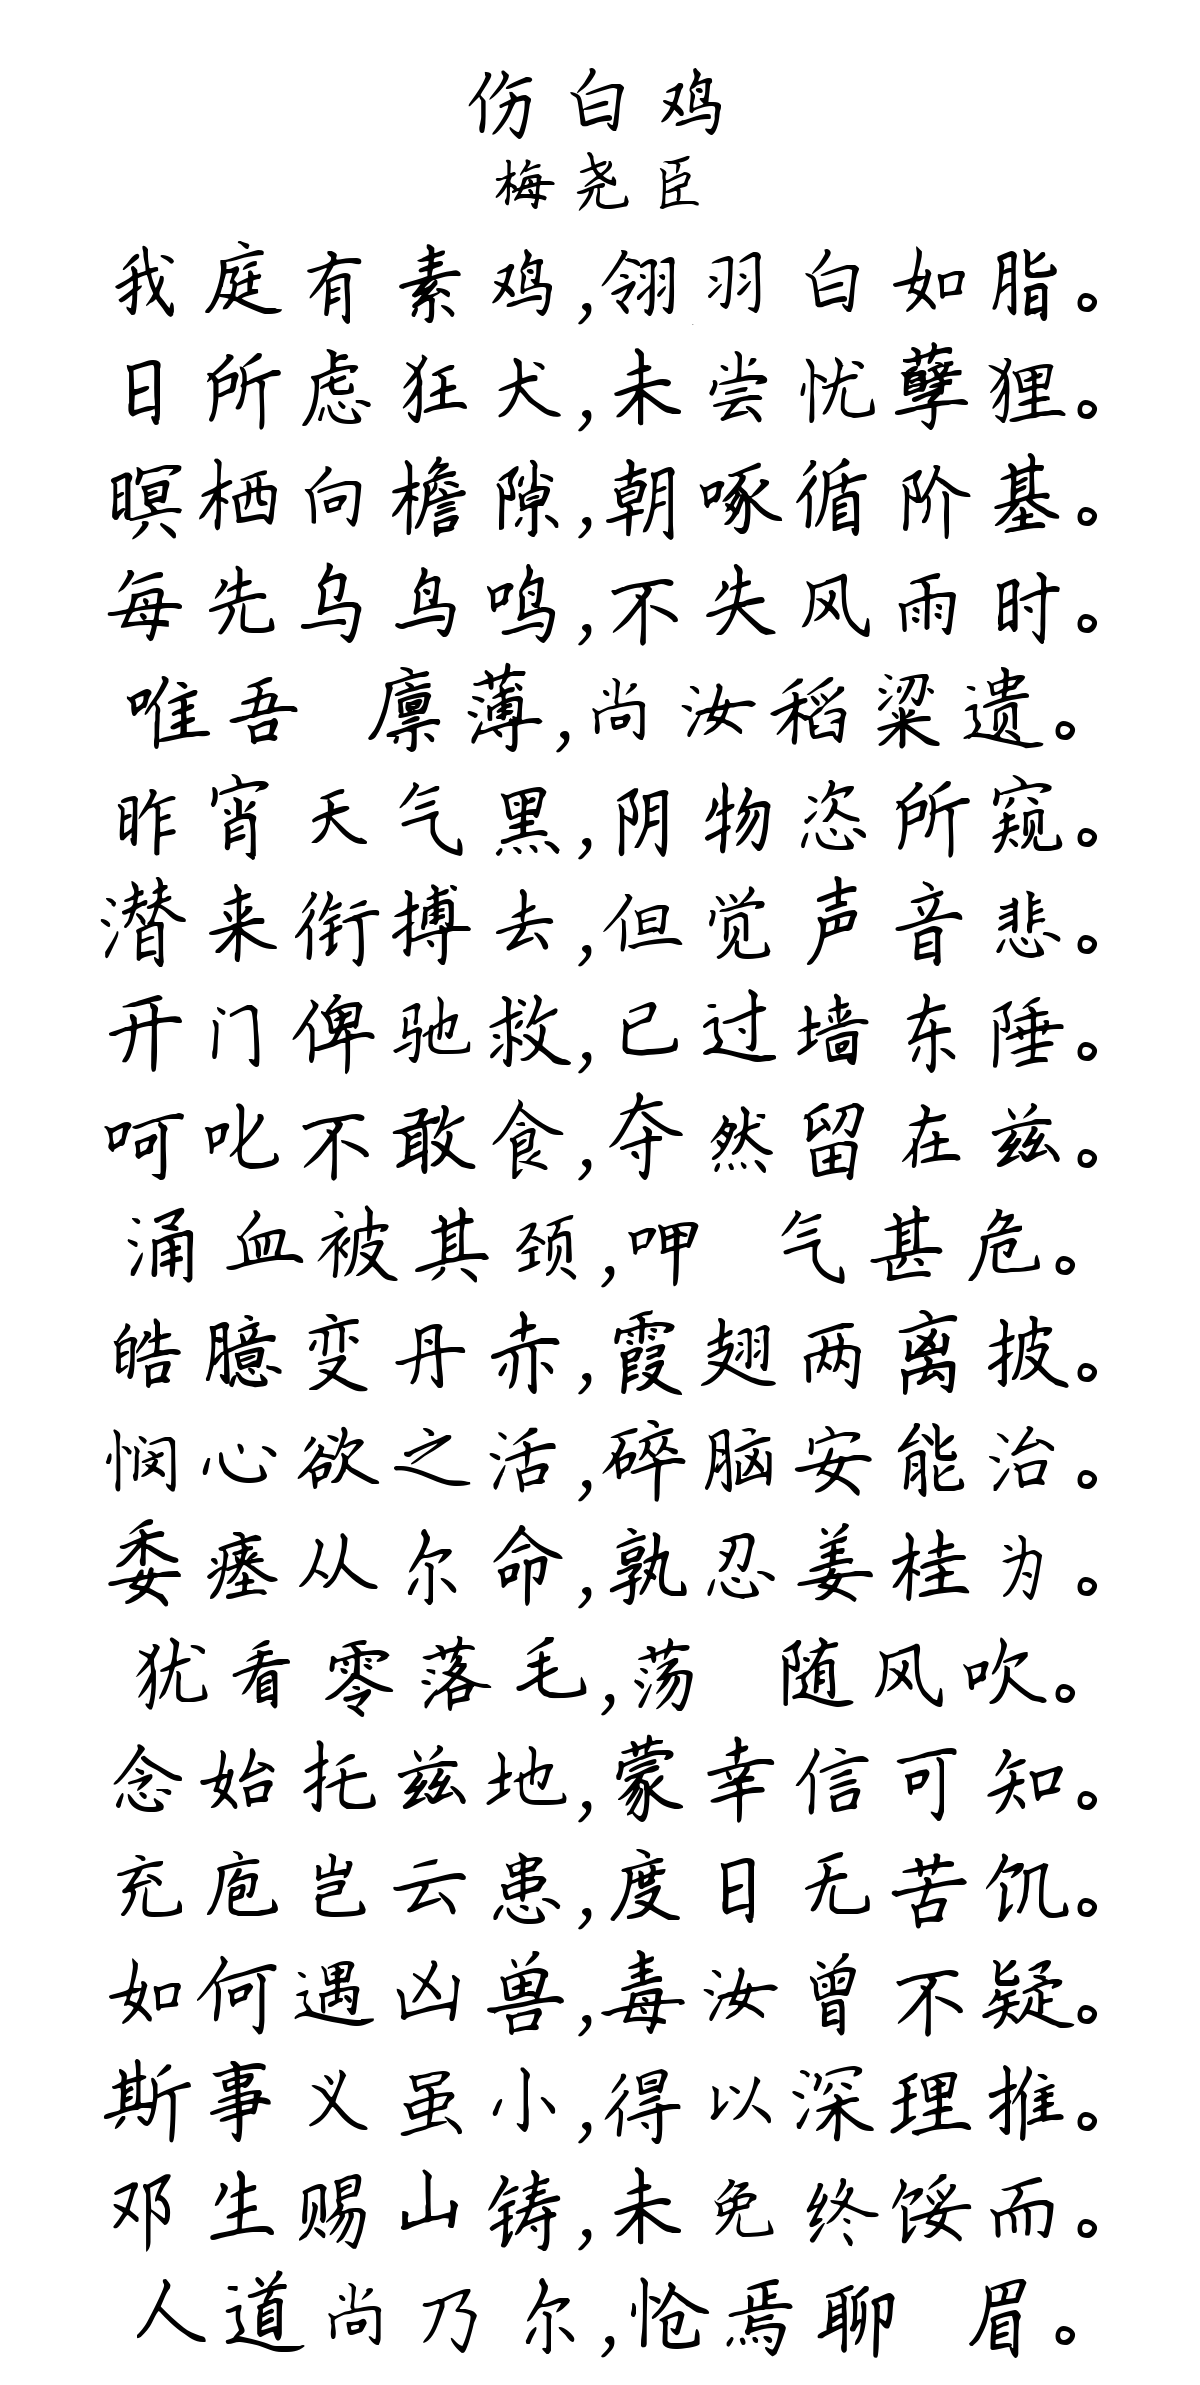 伤白鸡
梅尧臣
我庭有素鸡,翎羽白如脂。
日所虑狂犬,未尝忧孽狸。
暝栖向檐隙,朝啄循阶基。
每先乌鸟鸣,不失风雨时。
唯吾 廪薄,尚汝稻粱遗。
昨宵天气黑,阴物恣所窥。
潜来衔搏去,但觉声音悲。
开门俾驰救,已过墙东陲。
呵叱不敢食,夺然留在兹。
涌血被其颈,呷 气甚危。
皓臆变丹赤,霞翅两离披。
悯心欲之活,碎脑安能治。
委瘗从尔命,孰忍姜桂为。
犹看零落毛,荡 随风吹。
念始托兹地,蒙幸信可知。
充庖岂云患,度日无苦饥。
如何遇凶兽,毒汝曾不疑。
斯事义虽小,得以深理推。
邓生赐山铸,未免终馁而。
人道尚乃尔,怆焉聊 眉。